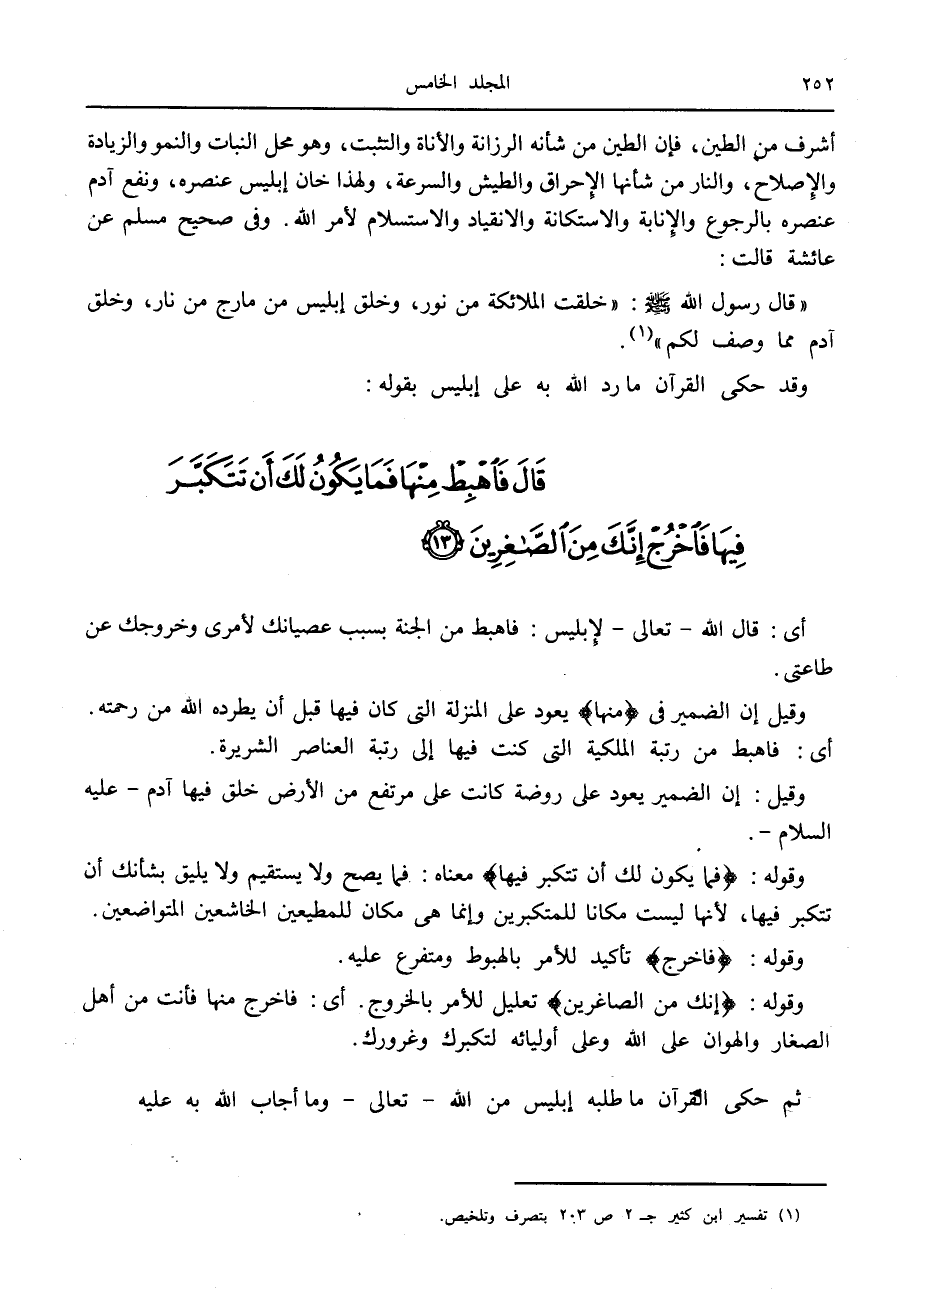 ٢٥٢ المجلد الخامس
أشرف من الطين، فإن الطين من شأنه الرزانة والأناة والتثبت، وهو محل النبات والنمو والزيادة
والإصلاح، والنار من شأنها الإحراق والطيش والسرعة، ولهذا خان إبليس عنصره، ونفع آدم
عنصره بالرجوع والإنابة والاستكانة والانقياد والاستسلام لأمر الله. وفى صحيح مسلم عن
عائشة قالت :
«قال رسول الله ﷺ : «خلقت الملائكة من نور، وخلق إبليس من مارج من نار، وخلق
آدم مما وصف لكم»(١).
وقد حكى القرآن ما رد الله به على إبليس بقوله :
قَالَ فَٱهْبِطْ مِنْهَا فَمَا يَكُونُ لَكَ أَن تَتَكَبَّرَ
فِيهَا فَٱخْرُجْ إِنَّكَ مِنَ ٱلصَّٰغِرِينَ ١٣
أى : قال الله – تعالى – لإبليس : فاهبط من الجنة بسبب عصيانك لأمرى وخروجك عن
طاعتى.
وقيل إن الضمير فى ﴿منها﴾ يعود على المنزلة التى كان فيها قبل أن يطرده الله من رحمته.
أى : فاهبط من رتبة الملكية التى كنت فيها إلى رتبة العناصر الشريرة.
وقيل : إن الضمير يعود على روضة كانت على مرتفع من الأرض خلق فيها آدم – عليه
السلام –.
وقوله : ﴿فما يكون لك أن تتكبر فيها﴾ معناه : فما يصح ولا يستقيم ولا يليق بشأنك أن
تتكبر فيها، لأنها ليست مكانا للمتكبرين وإنما هى مكان للمطيعين الخاشعين المتواضعين.
وقوله : ﴿فاخرج﴾ تأكيد للأمر بالهبوط ومتفرع عليه.
وقوله : ﴿إنك من الصاغرين﴾ تعليل للأمر بالخروج. أى : فاخرج منها فأنت من أهل
الصغار والهوان على الله وعلى أوليائه لتكبرك وغرورك.
ثم حكى القرآن ما طلبه إبليس من الله – تعالى – وما أجاب الله به عليه
(١) تفسير ابن كثير جـ ٢ ص ٢٠٣ بتصرف وتلخيص.